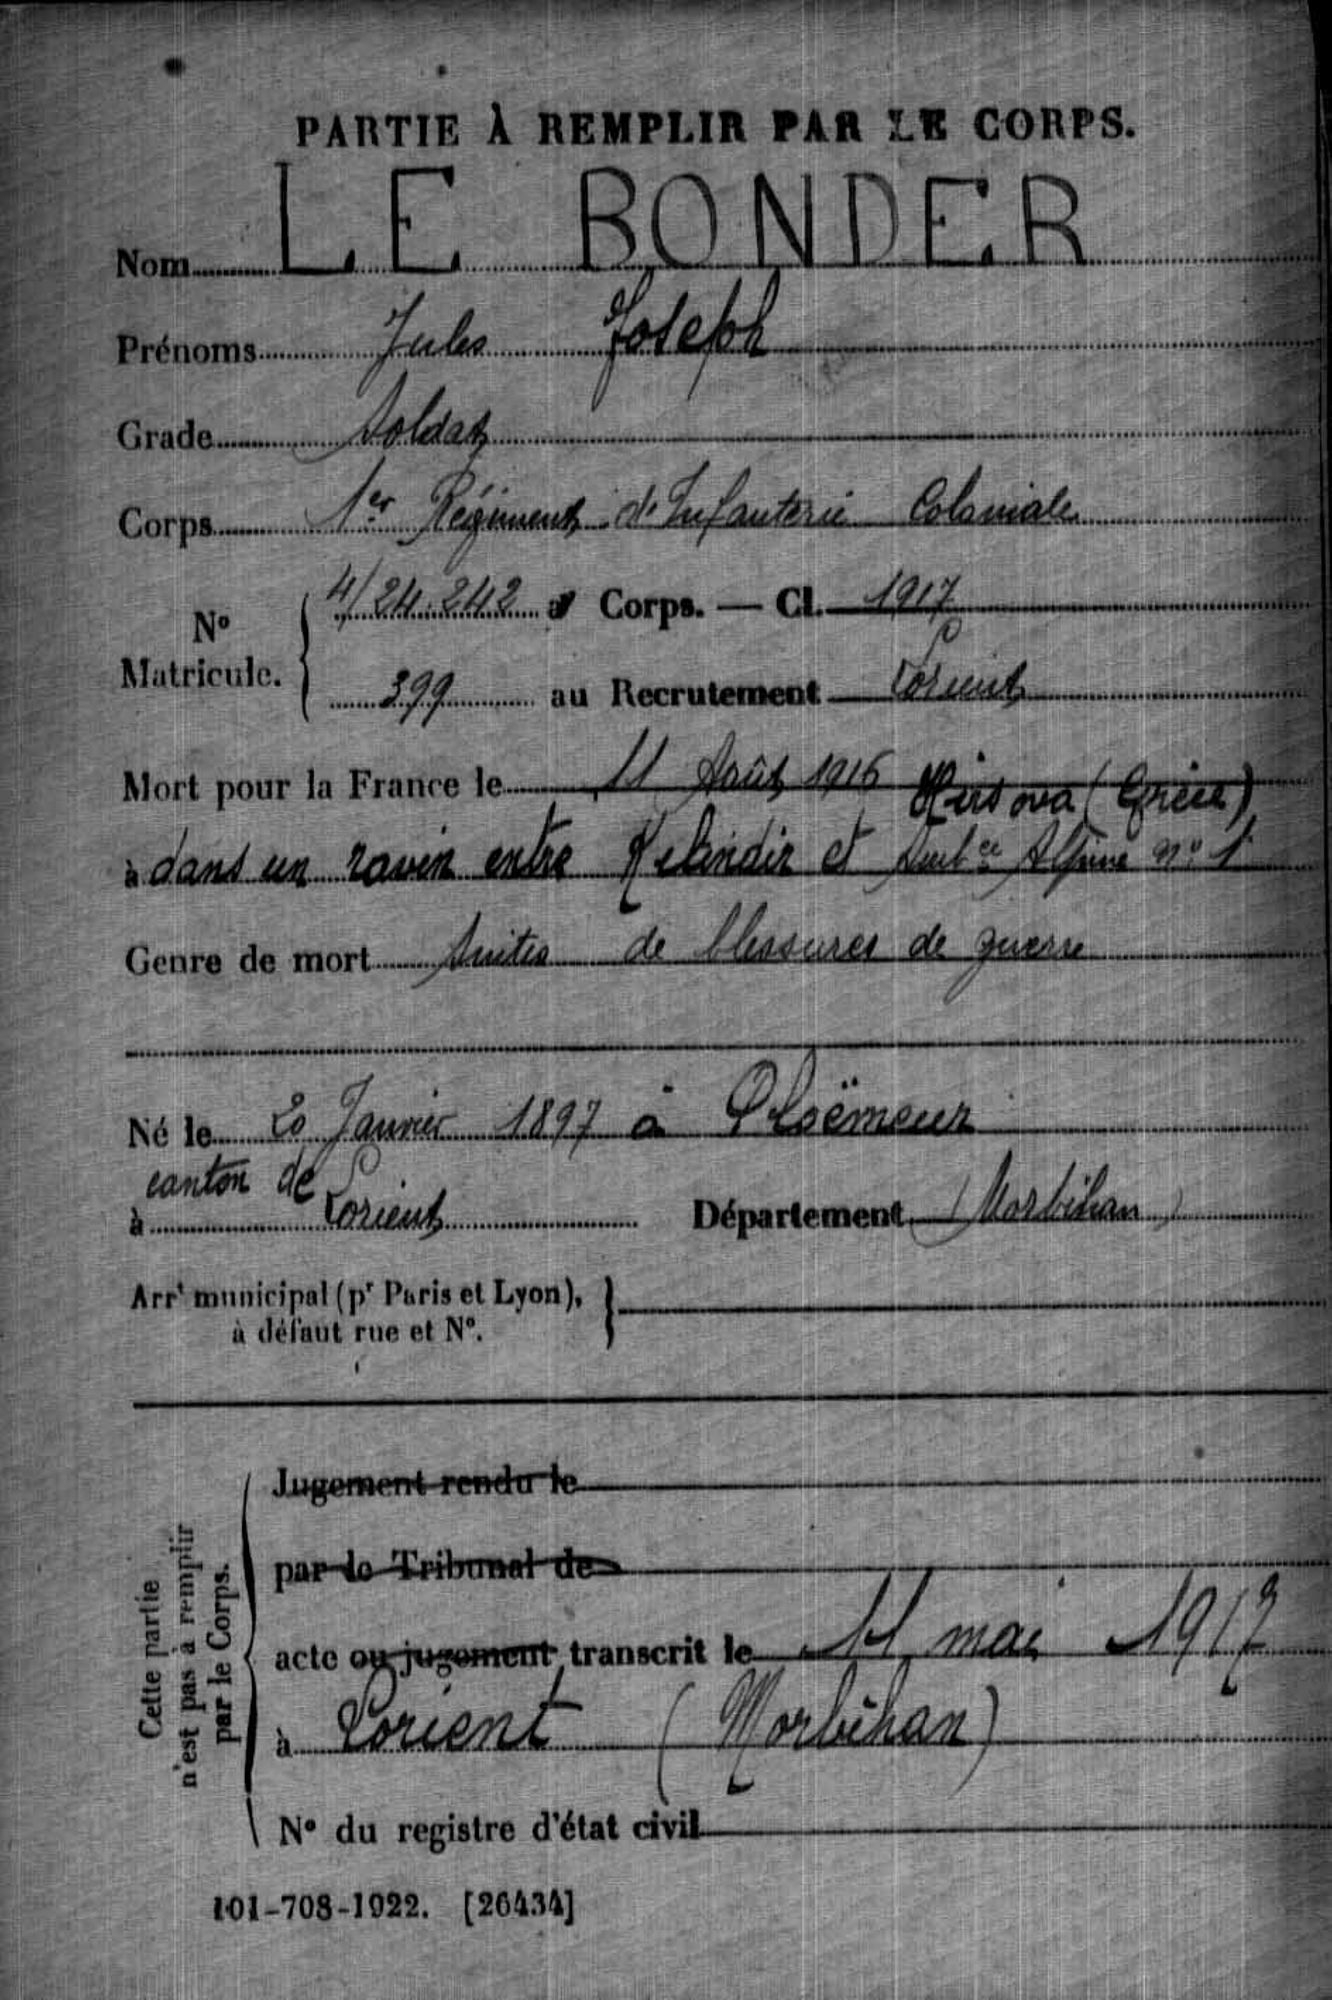 PARTIE À REMPLIR PAR LE CORPS.
Nom LE BONDER
Prénoms Jules Joseph
Grade Soldat
Corps 1er Régiment d'Infanterie Coloniale
No Matricule. { 4/24.242 au Corps. — Cl. 1917
399 au Recrutement Lorient
Mort pour la France le 11 Août 1916 Hirsova (Grèce)
à dans un ravin entre Kelindir et Ambce Alpine no 1
Genre de mort Suites de blessures de guerre
Né le 20 Janvier 1897 à Ploëmeur
canton de
à Lorient Département (Morbihan)
Arrt municipal (pr Paris et Lyon), }
à défaut rue et No.
Cette partie
n'est pas à remplir
par le Corps.
Jugement rendu le
par le Tribunal de
acte ou jugement transcrit le 11 mai 1917
à Lorient (Morbihan)
No du registre d'état civil
101-708-1922. [26434]